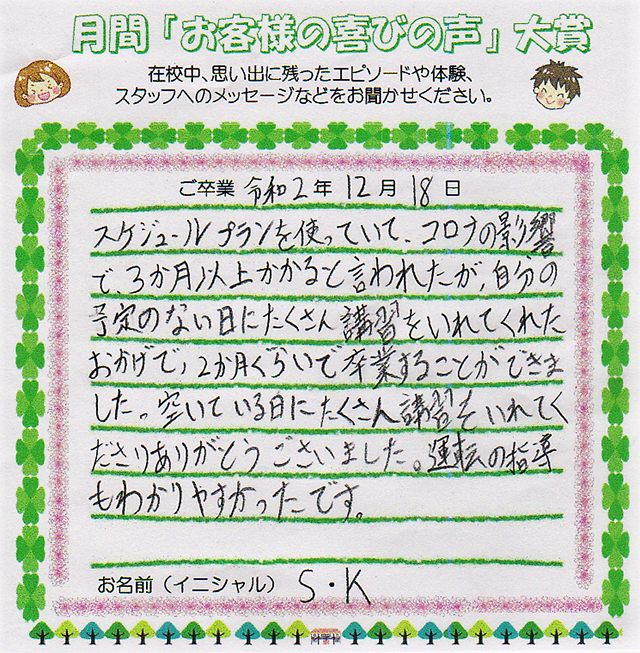 月間「お客様の喜びの声」大賞
在校中、思い出に残ったエピソードや体験、
スタッフへのメッセージなどをお聞かせください。
ご卒業 令和2年 12月 18日
スケジュールプランを使っていて、コロナの影響
で、3か月以上かかると言われたが、自分の
予定のない日にたくさん講習をいれてくれた
おかげで、2か月ぐらいで卒業することができま
した。空いている日にたくさん講習をいれてく
ださりありがとうございました。運転の指導
もわかりやすかったです。
お名前(イニシャル) S・K